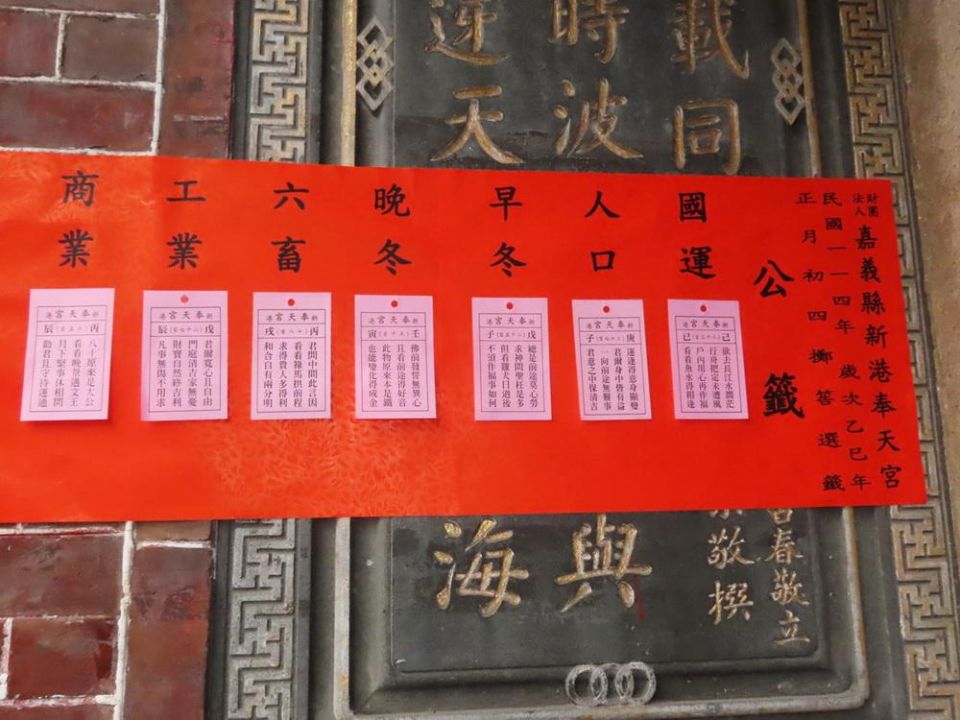 載同
時波
天
與
海
春敬立
敬撰
財團法人嘉義縣新港奉天宮
民國一一四年歲次乙巳年
正月初四擲筶選籤
公籤
國運
新港奉天宮
己巳
欲去長江水濶茫
行舟把定未遭風
戶內用心再作福
看看魚水得相逢
人口
新港奉天宮
庚子
運逢得意身顯變
君爾身中皆有益
一向前途無難事
君意之中保清吉
早冬
新港奉天宮
戊子
總是前途莫心勞
求神問聖枉是多
但看雞犬日過後
不須作福事如何
晚冬
新港奉天宮
壬寅
佛前發誓無異心
且看前途得好音
此物原來本是鐵
也能變化得成金
六畜
新港奉天宮
丙戌
君問中間此言因
看看祿馬拱前程
求得貴人多得利
和合自有兩分明
工業
新港奉天宮
戊辰
君爾寬心且自由
門庭清吉家無憂
財寶自然終吉利
凡事無傷不用求
商業
新港奉天宮
丙辰
八十原來是太公
看看晚景遇文王
月下緊事休相問
勸君且守待運通